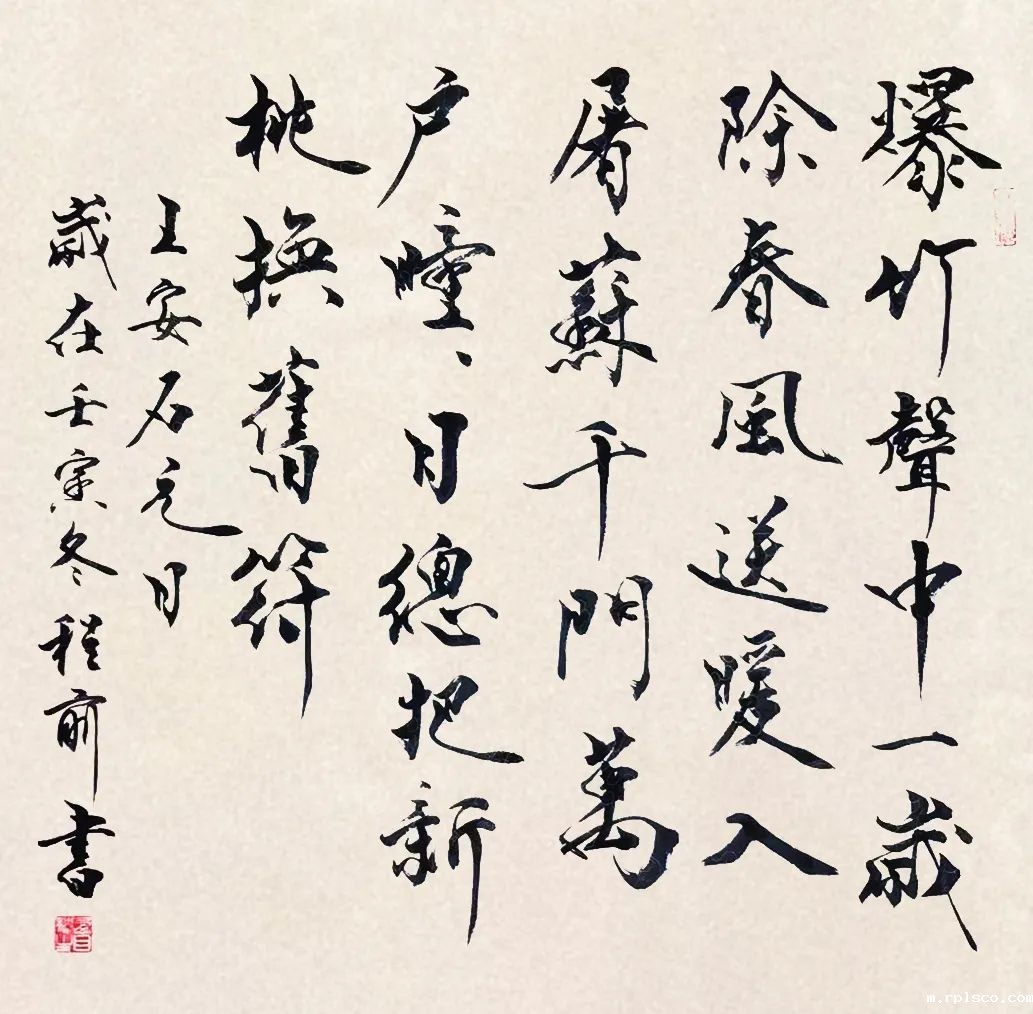 爆竹聲中一歲
除春風送暖入
屠蘇千門萬
户曈、日總把新
桃換舊符
王安石元日
歲在壬寅冬程前書
m.rplsco.com